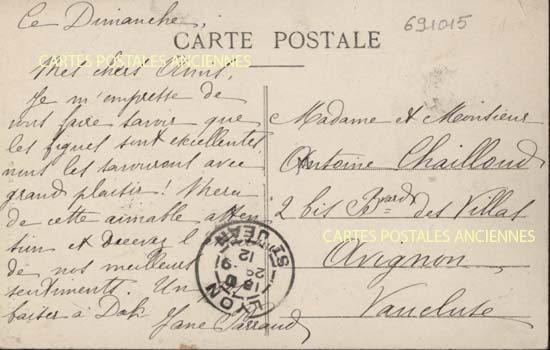 Ce Dimanche,
691015
CARTE POSTALE
CARTES POSTALES ANCIENNES
Mes chers Amis,
Je m'empresse de
vous faire savoir que
les figues sont excellentes,
nous les savourons avec
grand plaisir! Merci
de cette aimable atten
tion et recevez l
de nos meilleurs
sentiments. Un
baiser à
Jane
Madame et Monsieur
Antoine Chailloud
2 bis Bvard des Villas
CARTES POSTALES ANCIENNES
Avignon
Vaucluse
LYON
ST JEAN
12